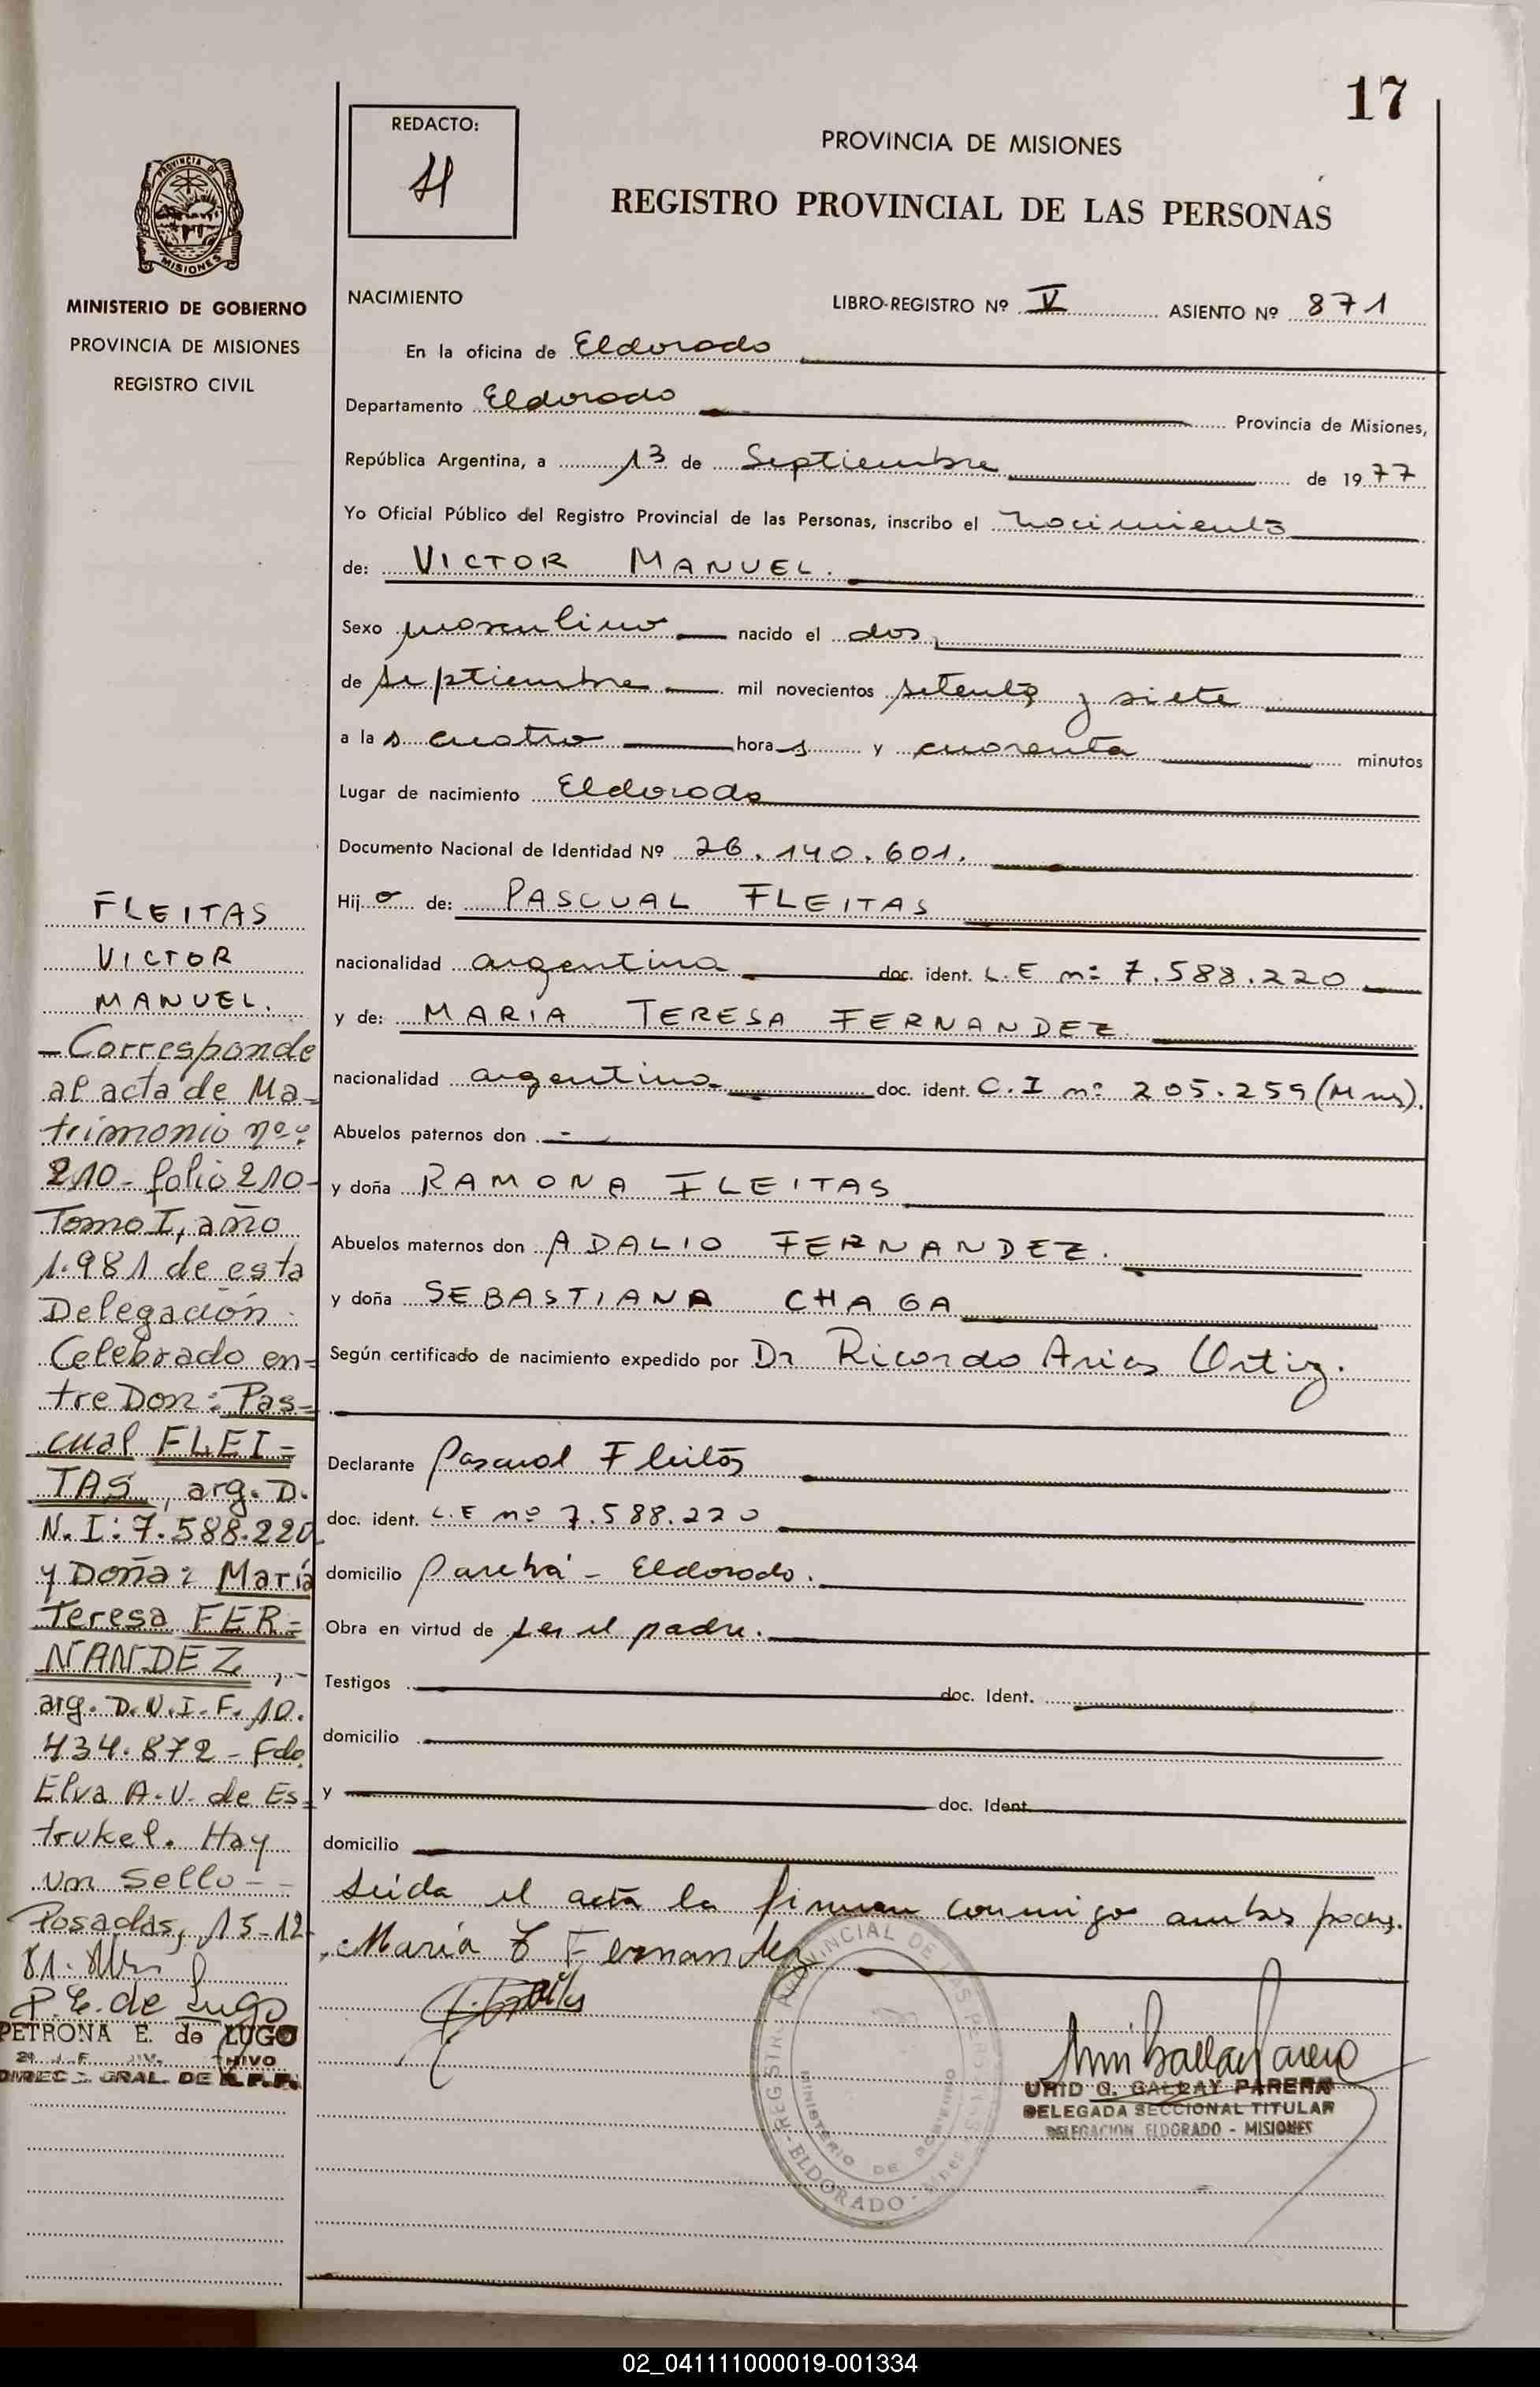 17
REDACTO:
PROVINCIA DE MISIONES
REGISTRO PROVINCIAL DE LAS PERSONAS
PROVINCIA DE
MISIONES
MINISTERIO DE GOBIERNO
PROVINCIA DE MISIONES
REGISTRO CIVIL
NACIMIENTO LIBRO-REGISTRO Nº V ASIENTO Nº 871
En la oficina de Eldorado
Departamento Eldorado Provincia de Misiones,
República Argentina, a 13 de Septiembre de 1977
Yo Oficial Público del Registro Provincial de las Personas, inscribo el nacimiento
de: VICTOR MANUEL.
Sexo masculino nacido el dos
de septiembre mil novecientos setenta y siete
a las cuatro horas y cuarenta minutos
Lugar de nacimiento Eldorado
Documento Nacional de Identidad Nº 26.140.601.
Hijo de: PASCUAL FLEITAS
nacionalidad argentina doc. ident. L.E nº 7.588.220
y de: MARIA TERESA FERNANDEZ
nacionalidad argentina doc. ident. C.I nº 205.259 (Mns).
Abuelos paternos don -
y doña RAMONA FLEITAS
Abuelos maternos don ADALIO FERNANDEZ.
y doña SEBASTIANA CHAGA
Según certificado de nacimiento expedido por Dr Ricardo Arias Ortiz.
Declarante Pascual Fleitas
doc. ident. L.E nº 7.588.220
domicilio Parehá - Eldorado.
Obra en virtud de ser el padre.
Testigos doc. Ident.
domicilio
y doc. Ident.
domicilio
Leida el acta la firman conmigo ambos padres.
Maria T Fernandez
FLEITAS
VICTOR
MANUEL.
- Corresponde
al acta de Ma-
trimonio nº:
210 - folio 210-
Tomo I, año
1.981 de esta
Delegación
Celebrado en=
tre Don: Pas=
cual FLEI=
TAS, arg. D.
N.I: 7.588.220
y Doña: María
Teresa FER=
NANDEZ,-
arg. D.N.I.F. 10.
434.872 - Fdo.
Elva A.V. de Es=
trukel. Hay
un Sello - -
Posadas, 15-12-
81.
P.E. de Lugo
PETRONA E. de LUGO
DIREC GRAL. DE R.P.P.
REGISTRO PROVINCIAL DE LAS PERSONAS
MINISTERIO DE GOBIERNO
- ELDORADO - Mnes
URID G. GALLAY PARERA
DELEGADA SECCIONAL TITULAR
DELEGACION ELDORADO - MISIONES
02_041111000019-001334